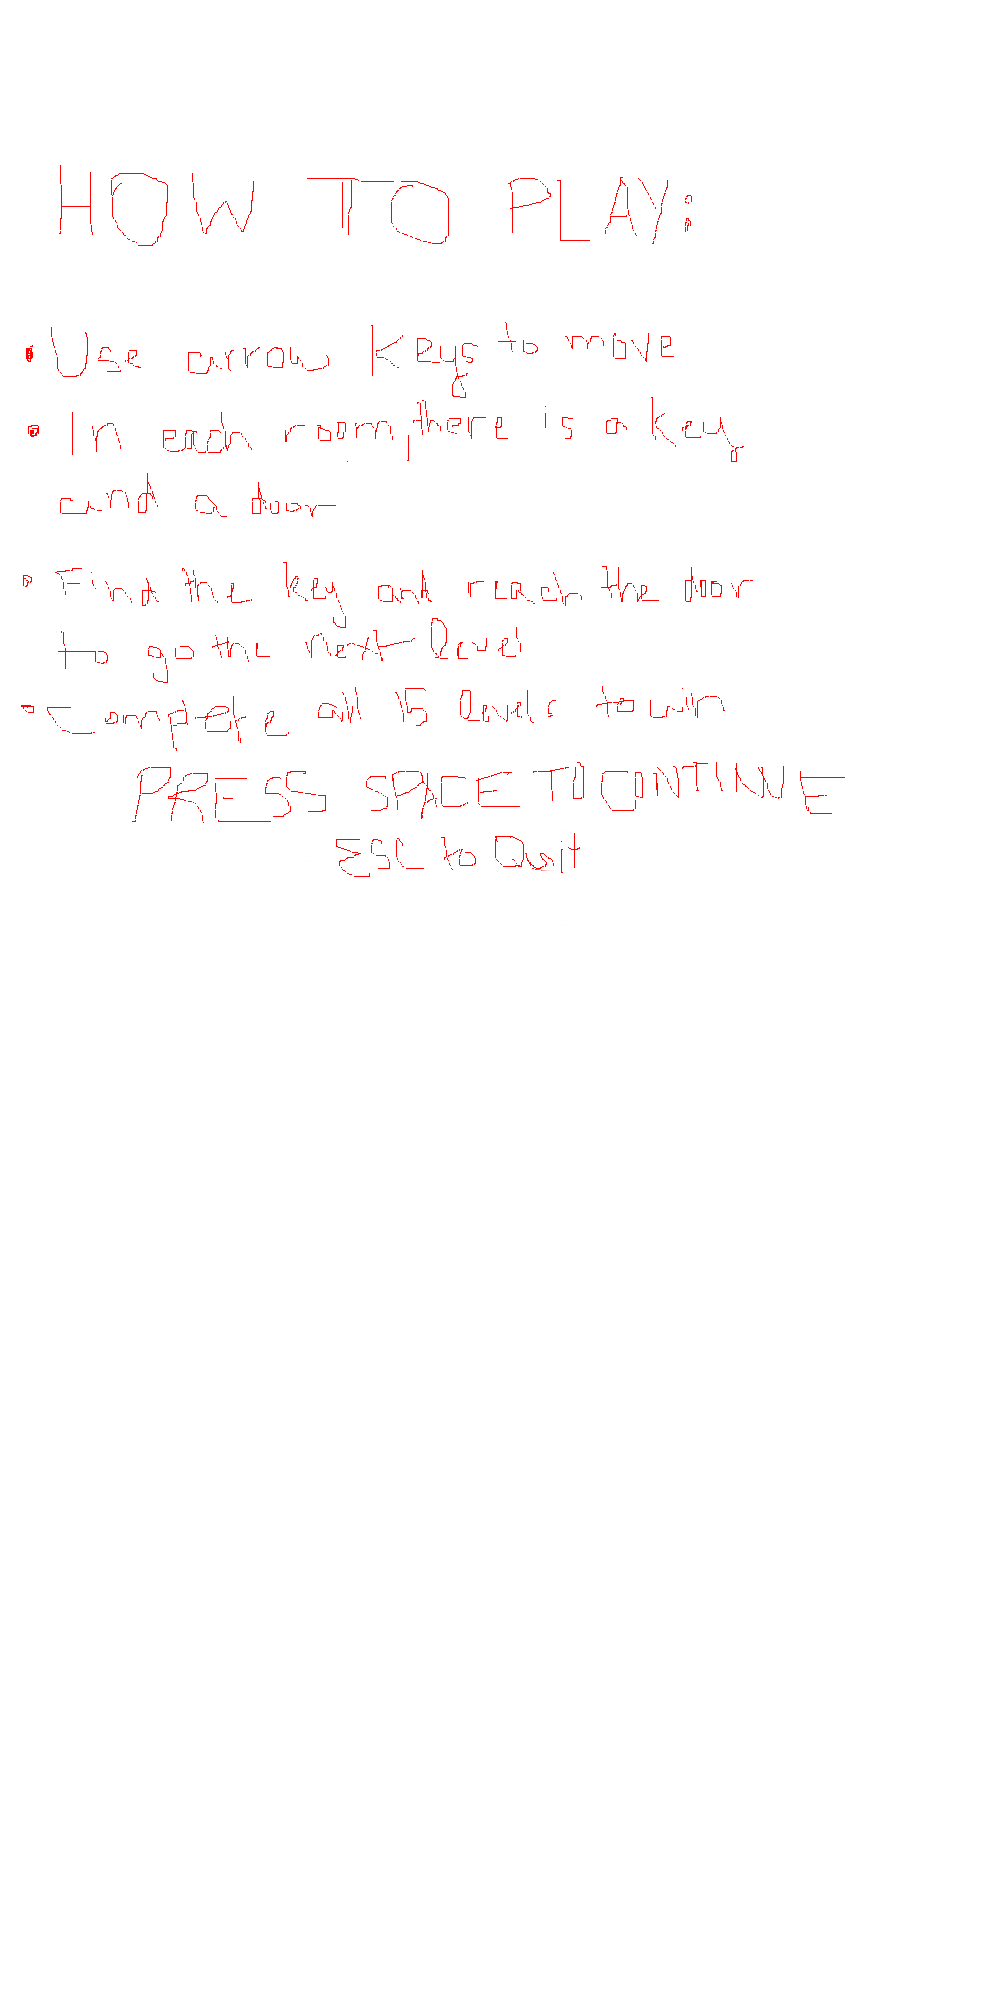 HOW TO PLAY:
• Use arrow keys to move
• In each room, there is a key
and a door
• Find the key and reach the door
to go the next level
• Compete all 15 levels to win
PRESS SPACE TO CONTINUE
ESC to Quit